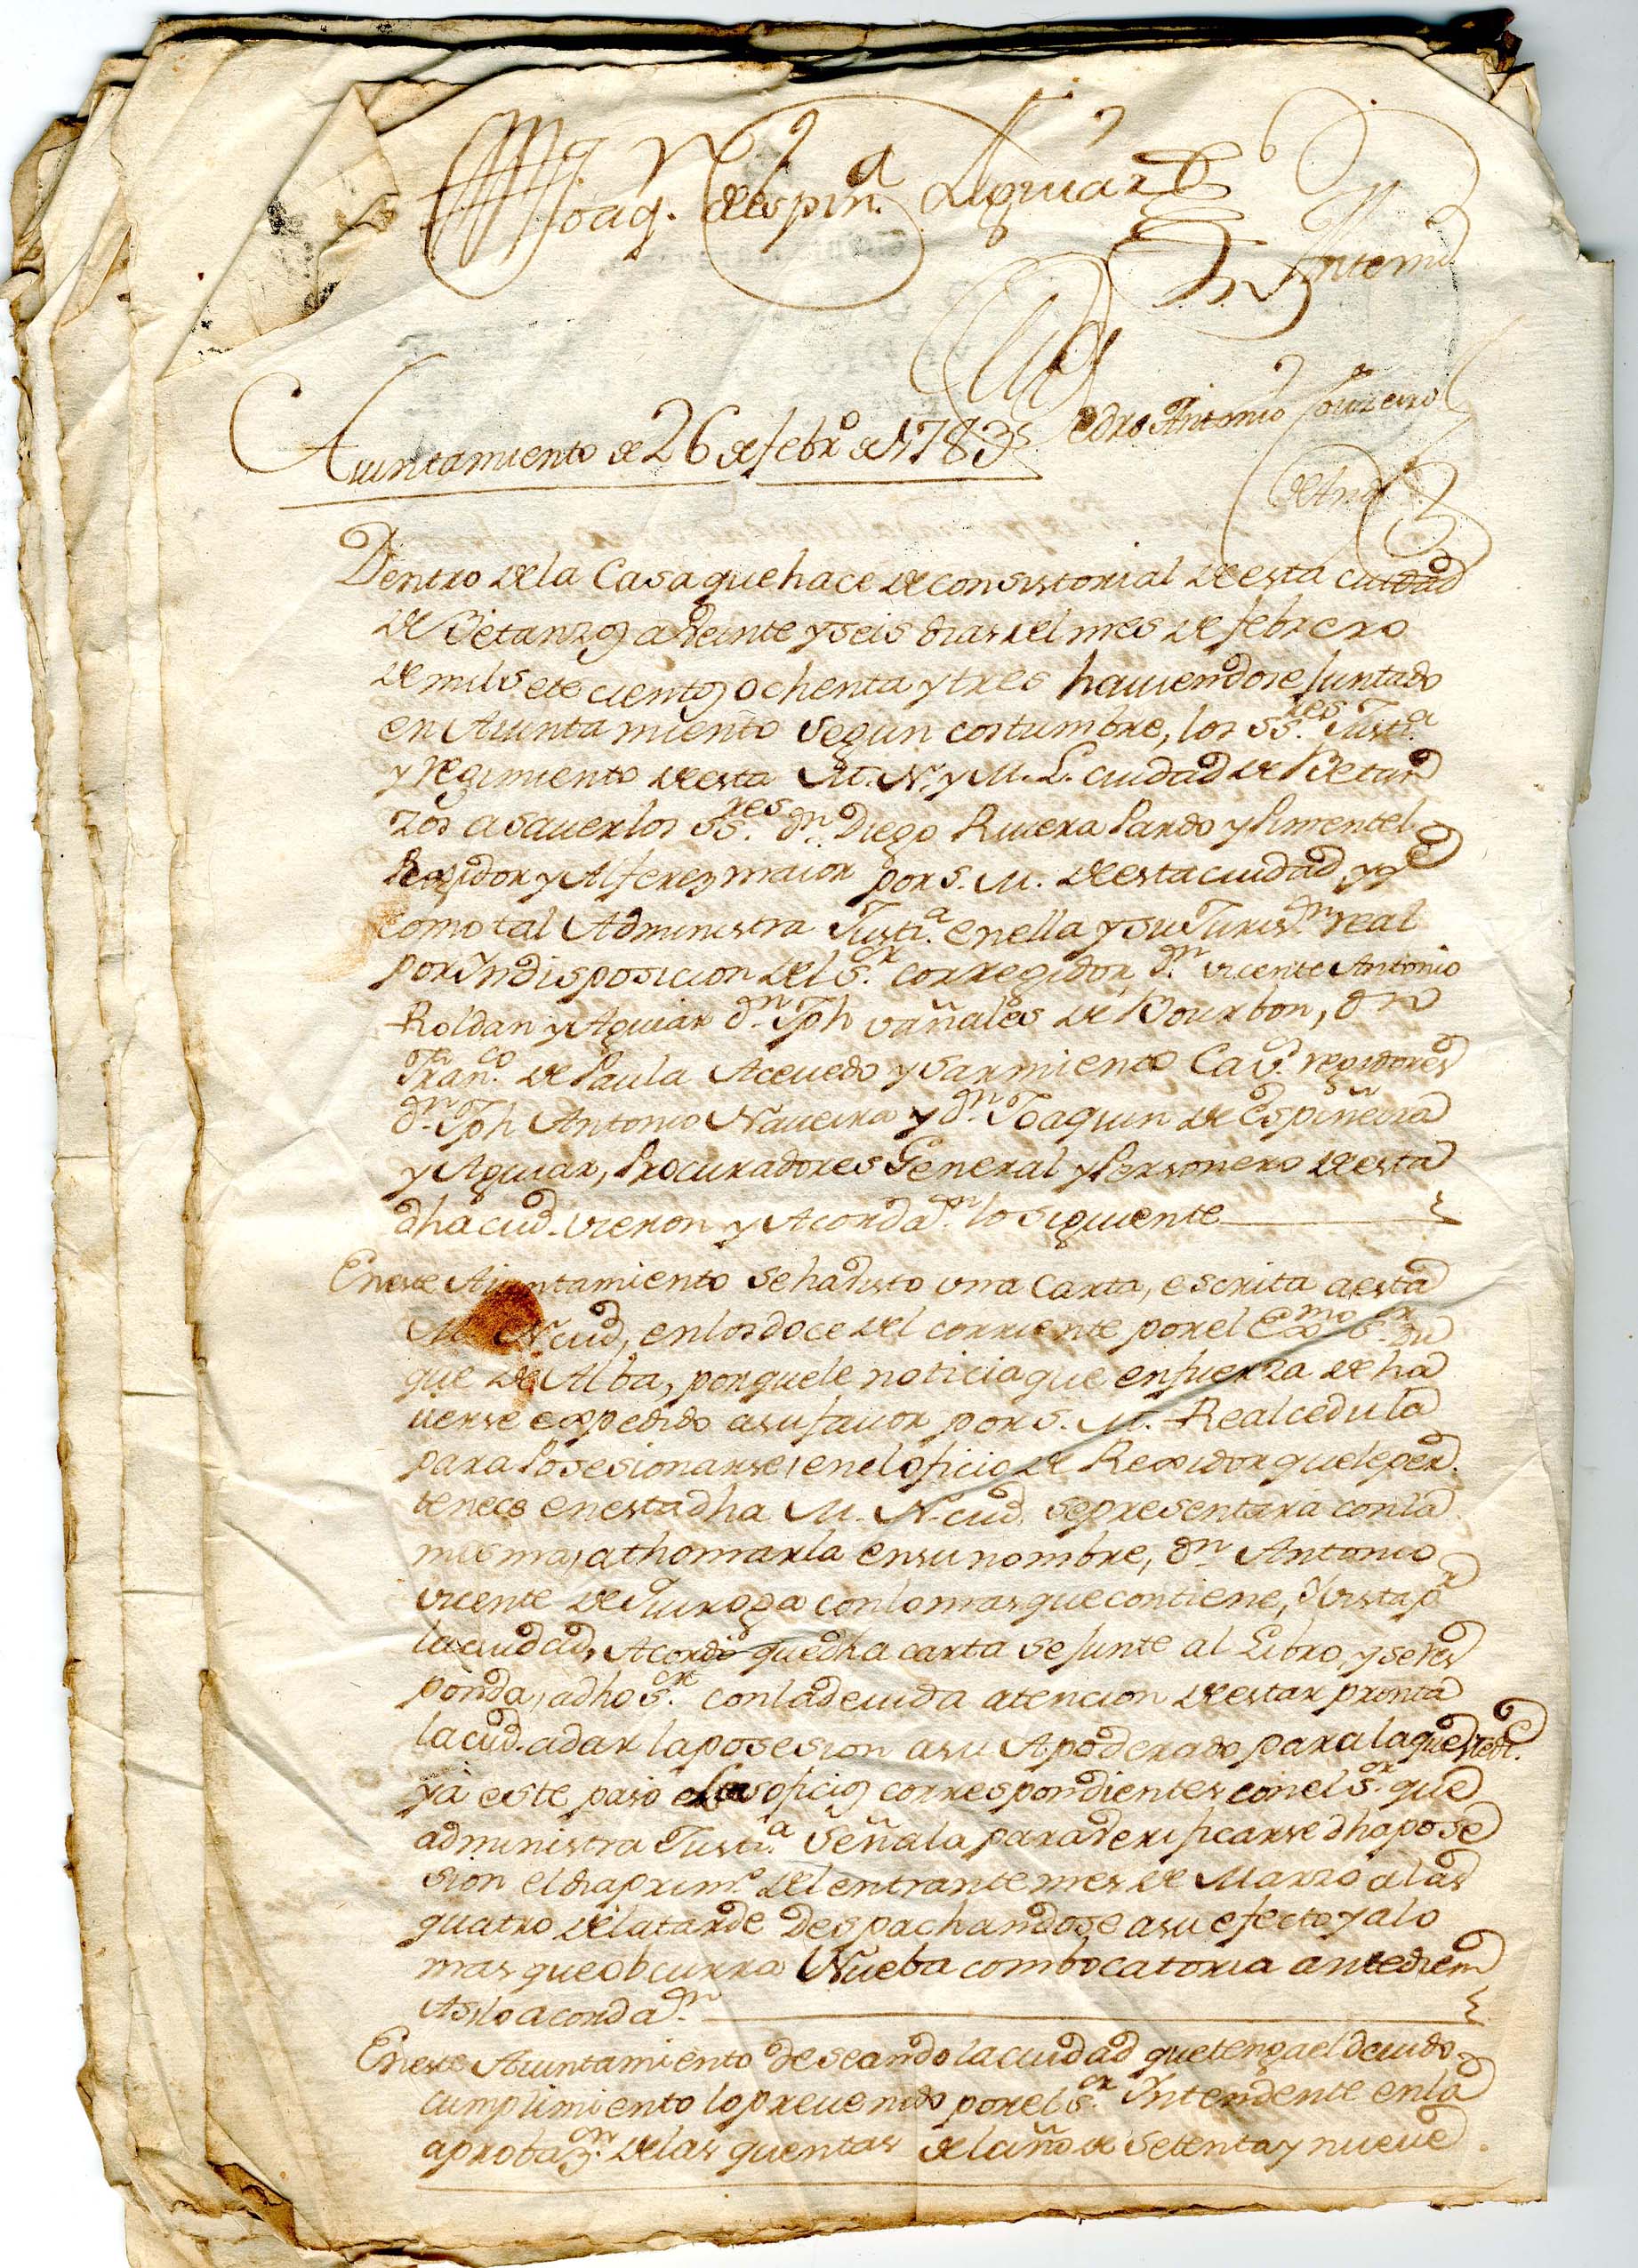 Joaq. de Espin.ª Aguiar
Antemi
Pedro Antonio
Aiuntamiento de 26 de febr.º de 1783,,
Dentro dela Casa que hace de consistorial de esta ciudad
de Betanzos a Veinte y seis dias del mes de febrero
de mil sete cientos ochenta y tres haviendose Juntado
en Aiunta miento segun costumbre, los SS.res Justi.ª
y regimiento de esta M. N. y M. L. ciudad de Betan
zos a saver los SS.res d.n Diego Rivera Pardo y Pimentel
Regidor y Alferez maior por S. M. de esta ciudad, y q.e
como tal Administra Justi.ª en ella y su Juris.on real
por Yndisposicion del S.or corregidor, d.n vicente Antonio
Roldan y Aguiar d.n Jph vañales de Bourbon, d.n
Fran.co de Paula Acevedo y Sarmiento Cav.s regidores
d.n Jph Antonio Naveira y d.n Joaquin de Espiñeira
y Aguiar, Procuradores General y Personero de esta
dha ciud. vieron y Acorda.on lo siguiente
En este Aiuntamiento se ha visto una Carta, escrita a esta
M. N. ciud, en los doce del corriente por el Exmo S.or Du
que de Alba, por que le noticia que en fuerza de ha
verse expedido a su favor por S. M. Real cedula
para Posesionarse, en el oficio de Regidor que le per
tenece en esta dha M. N. ciud. se presentara con la
misma, a thomarla en su nombre, d.n Antonio
vicente de Quiroga con lo mas que contiene, Y vista p.r
la ciudad, Acordó que dha carta se Junte al Libro, y se res
ponda, a dho S.or con la devida atencion de estar pronta
la ciud. a dar la posesion a su Apoderado para la que
ya este paso los oficios correspondientes con el S.or que
administra Justi.ª Señala para verificarse dha pose
sion el dia prim.º del entrante mes de Marzo a las
quatro de la tarde Despachandose a su efecto y a lo
mas que obcurra Nueba combocatoria antediem
Asi lo acorda.on
En este Aiuntamiento deseando la ciudad que tenga el devido
cumplimiento lo prevenido por el S.or Yntendente en la
aproba.on de las quentas del año de Setenta y nueve